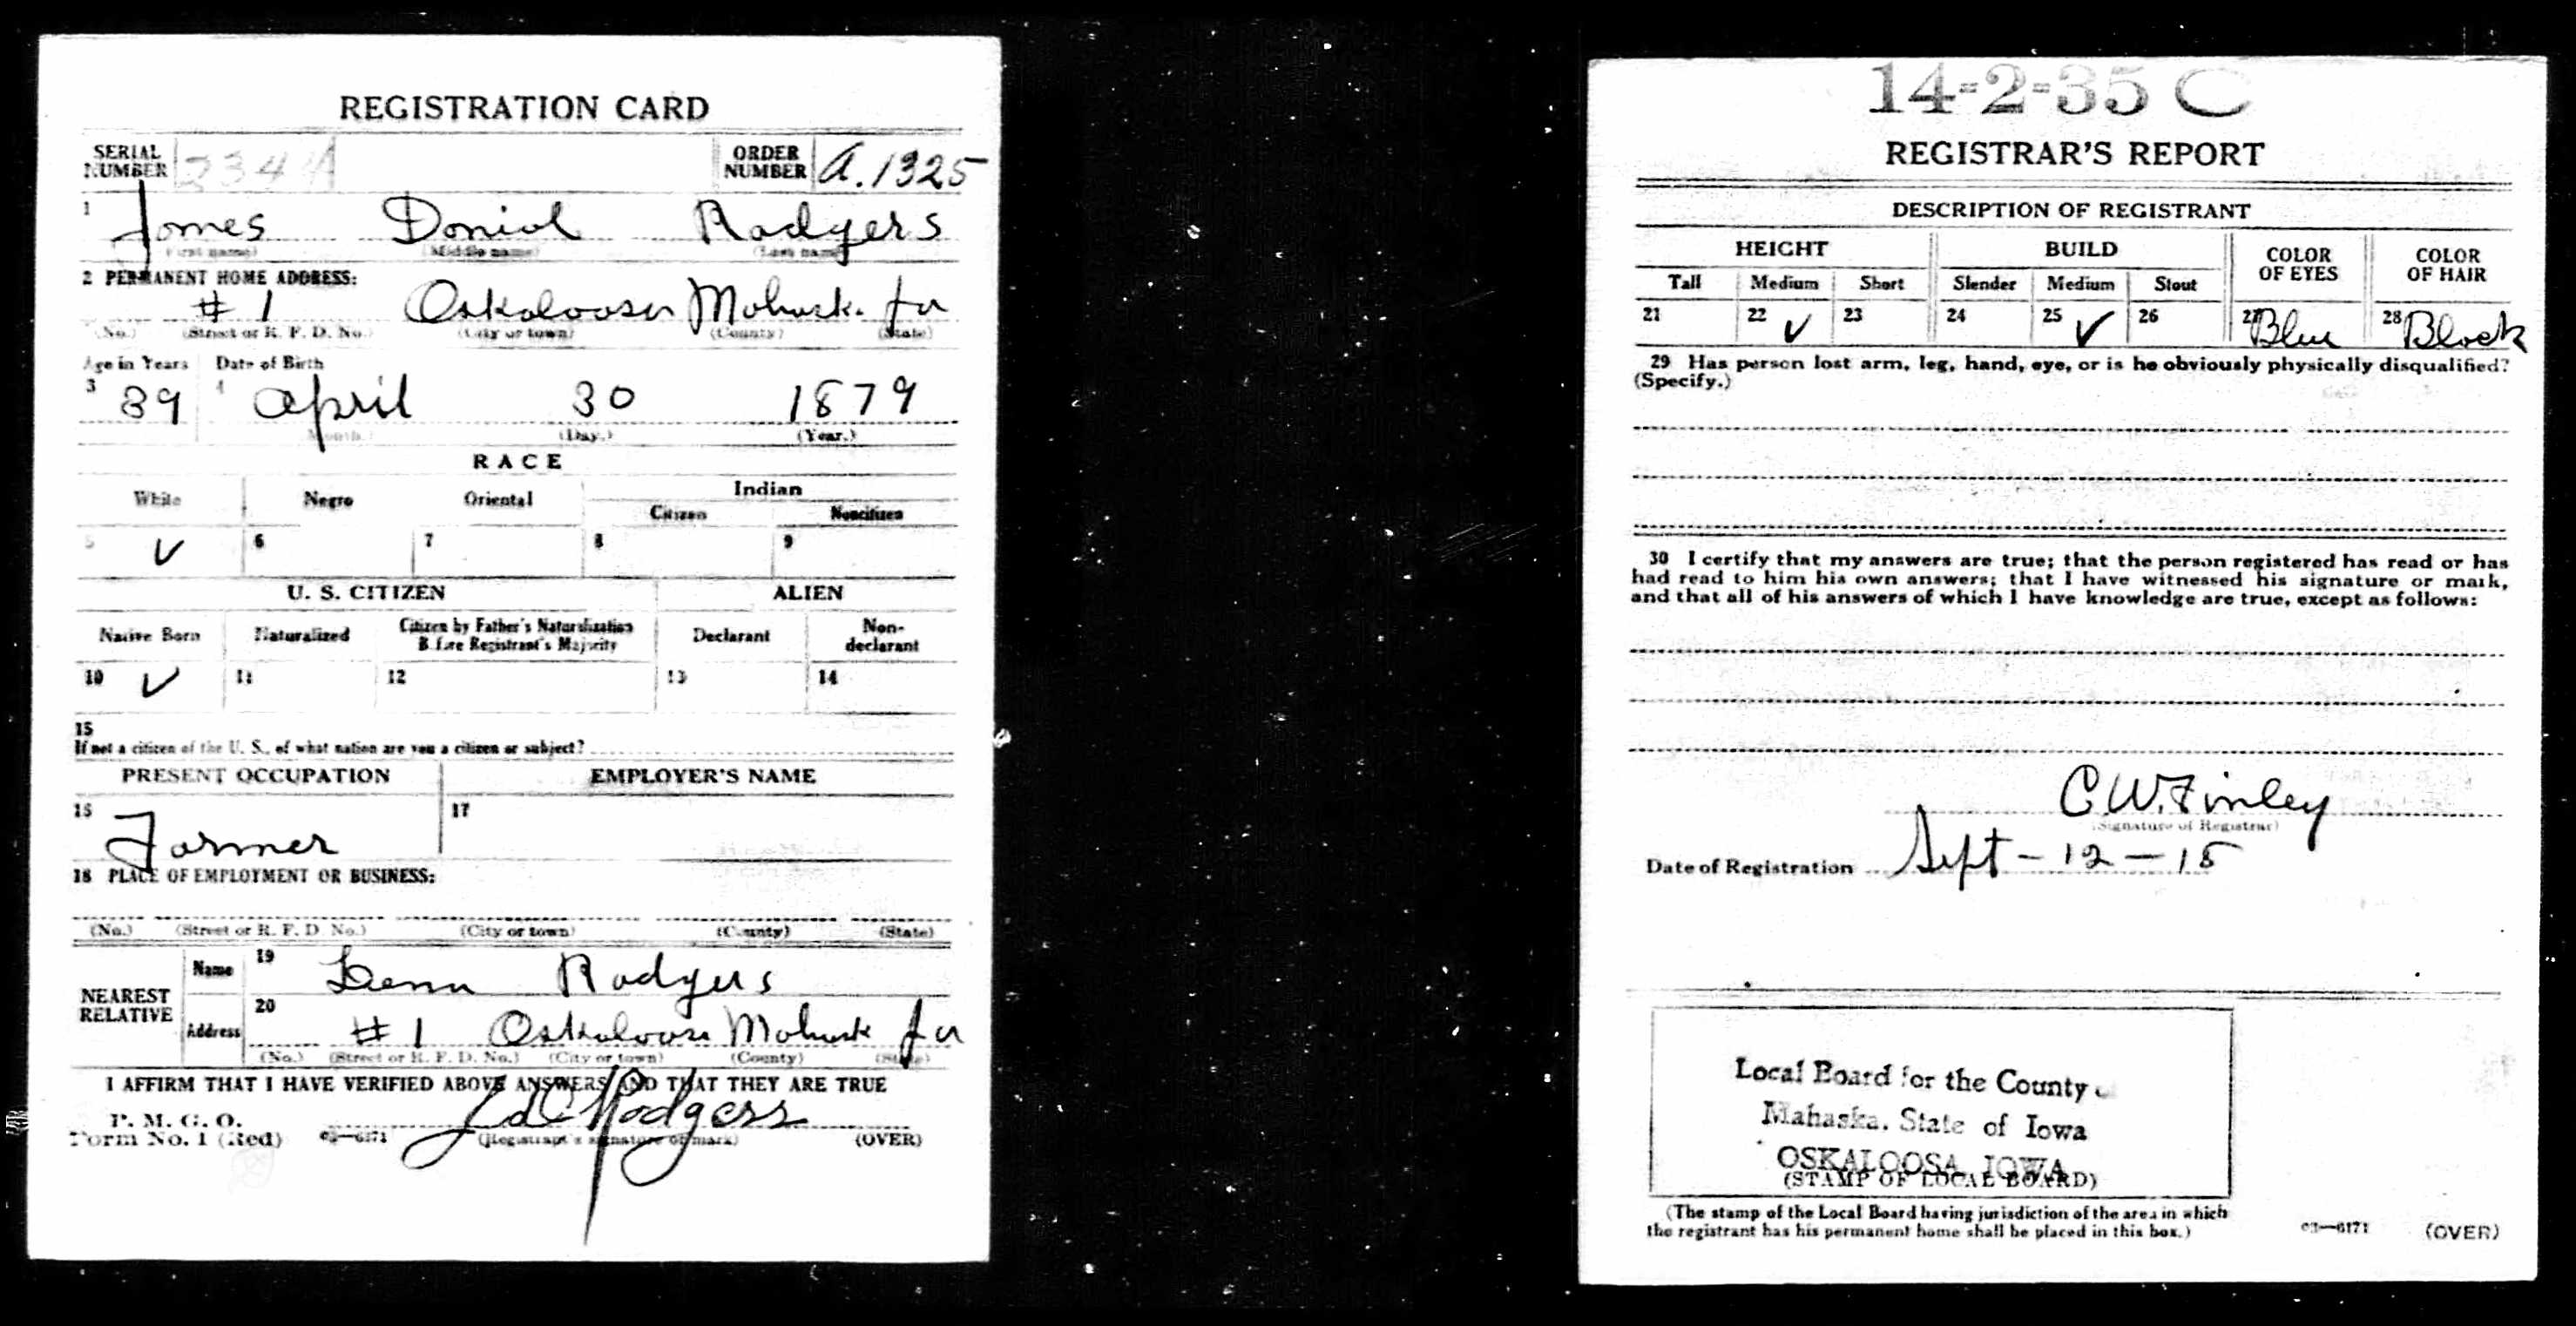 REGISTRATION CARD
SERIAL NUMBER 2344 ORDER NUMBER A.1325
1 James Daniel Rodgers
(First name) (Middle name) (Last name)
2 PERMANENT HOME ADDRESS:
# 1 Oskaloosa Mahask. Ia
(No.) (Street or R. F. D. No.) (City or town) (County) (State)
Age in Years Date of Birth
3 39 4 April 30 1879
(Month.) (Day.) (Year.)
RACE
White Negro Oriental Indian
Citizen Noncitizen
5 ✓ 6 7 8 9
U. S. CITIZEN ALIEN
Native Born Naturalized Citizen by Father's Naturalization Before Registrant's Majority Declarant Non-declarant
10 ✓ 11 12 13 14
15
If not a citizen of the U. S., of what nation are you a citizen or subject?
PRESENT OCCUPATION EMPLOYER'S NAME
16 Farmer 17
18 PLACE OF EMPLOYMENT OR BUSINESS:
(No.) (Street or R. F. D. No.) (City or town) (County) (State)
NEAREST RELATIVE Name 19 Lena Rodgers
Address 20 # 1 Oskaloosa Mahask Ia
(No.) (Street or R. F. D. No.) (City or town) (County) (State)
I AFFIRM THAT I HAVE VERIFIED ABOVE ANSWERS AND THAT THEY ARE TRUE
P. M. G. O.
Form No. 1 (Red) 03—6171 (Registrant's signature or mark) (OVER)
Rodgers
14-2-35 C
REGISTRAR'S REPORT
DESCRIPTION OF REGISTRANT
HEIGHT BUILD COLOR OF EYES COLOR OF HAIR
Tall Medium Short Slender Medium Stout
21 22 ✓ 23 24 25 ✓ 26 27 Blue 28 Black
29 Has person lost arm, leg, hand, eye, or is he obviously physically disqualified?
(Specify.)
30 I certify that my answers are true; that the person registered has read or has
had read to him his own answers; that I have witnessed his signature or mark,
and that all of his answers of which I have knowledge are true, except as follows:
C.W. Finley
(Signature of Registrar)
Date of Registration Sept - 12 - 18
Local Board for the County
Mahaska, State of Iowa
OSKALOOSA, IOWA
(STAMP OF LOCAL BOARD)
(The stamp of the Local Board having jurisdiction of the area in which
the registrant has his permanent home shall be placed in this box.)
03—6171 (OVER)